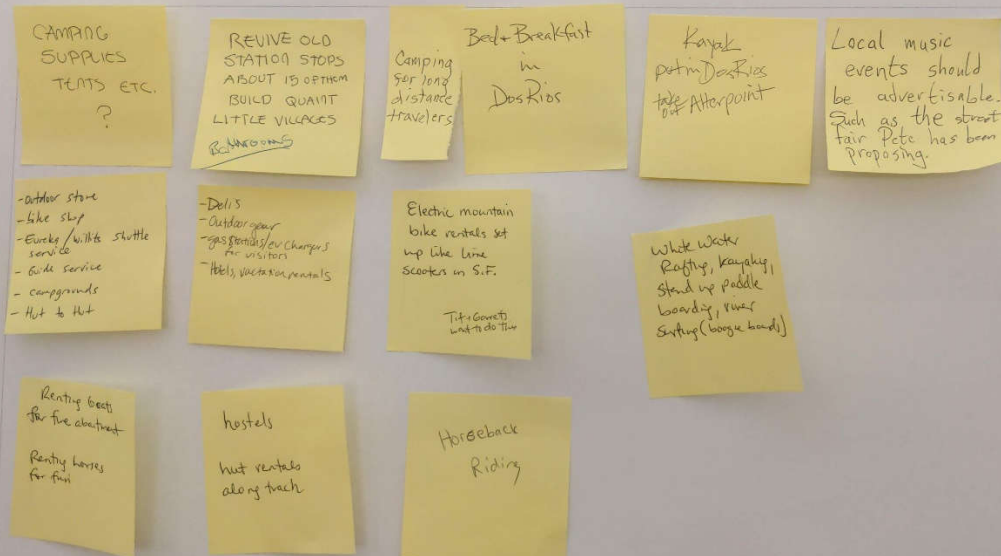 CAMPING
SUPPLIES
TENTS ETC.
?
REVIVE OLD
STATION STOPS
ABOUT 15 OF THEM
BUILD QUAINT
LITTLE VILLAGES
Camping
for long
distance
travelers
Bed + Breakfast
in
Dos Rios
Kayak
put in Dos Rios
take out Alderpoint
Local music
events should
be advertisable.
Such as the street
fair Pete has been
proposing.
- outdoor store
- bike shop
- Eureka/Willits shuttle
service
- Guide service
- campgrounds
- Hut to Hut
- Deli's
- Outdoor gear
- gas stations/ev chargers
for visitors
- Hotels, vacation rentals
Electric mountain
bike rentals set
up like lime
scooters in S.F.
want to do this
White Water
Rafting, kayaking,
Stand up paddle
boarding, river
Surfing (boogie boards)
Renting goats
for fire abatement
Renting horses
for fun
hostels
hut rentals
along track
Horseback
Riding